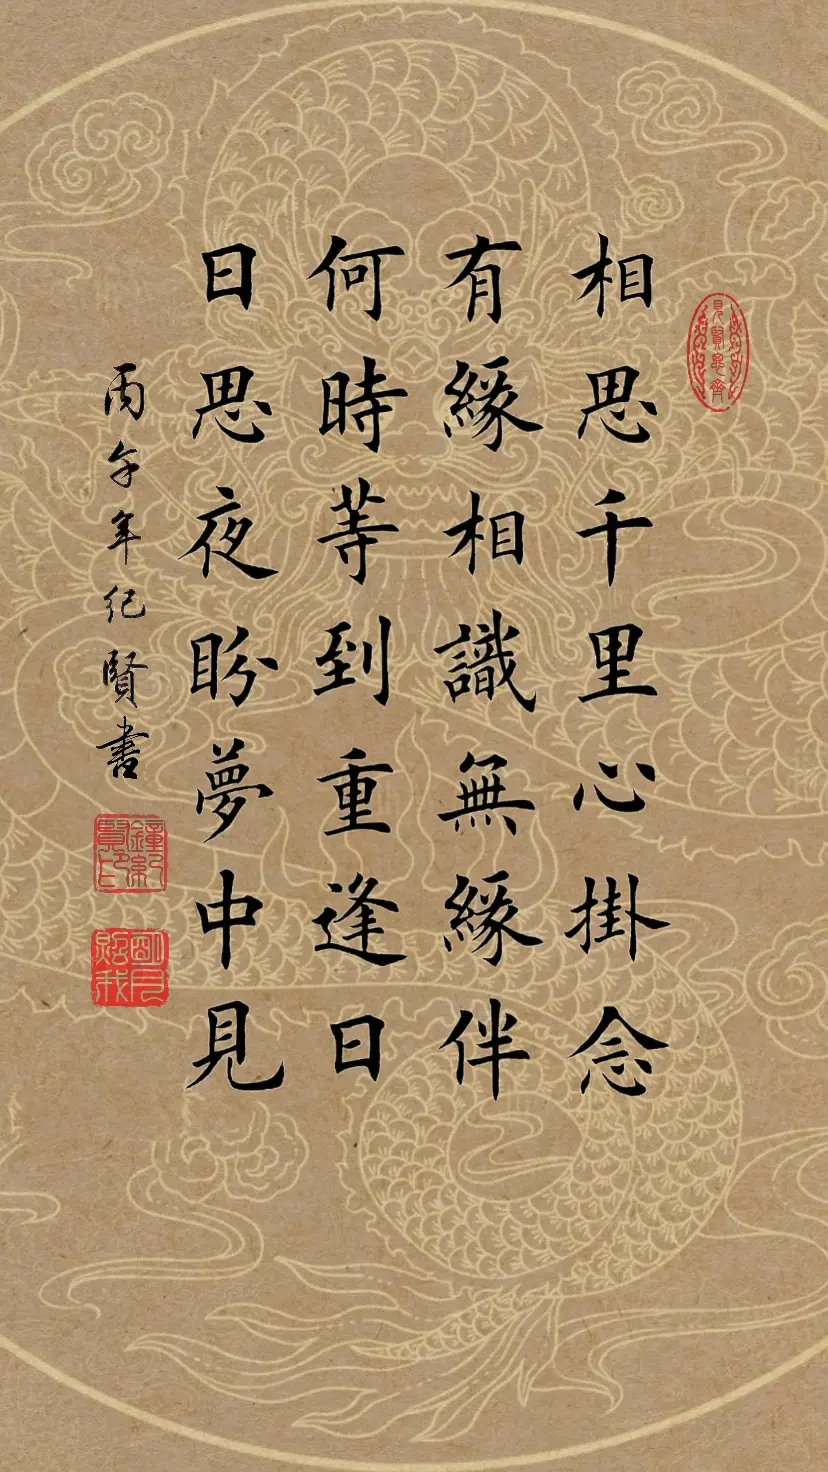 相思千里心掛念
有緣相識無緣伴
何時等到重逢日
日思夜盼夢中見
丙午年纪賢書
見賢思齊
鐘紀賢印